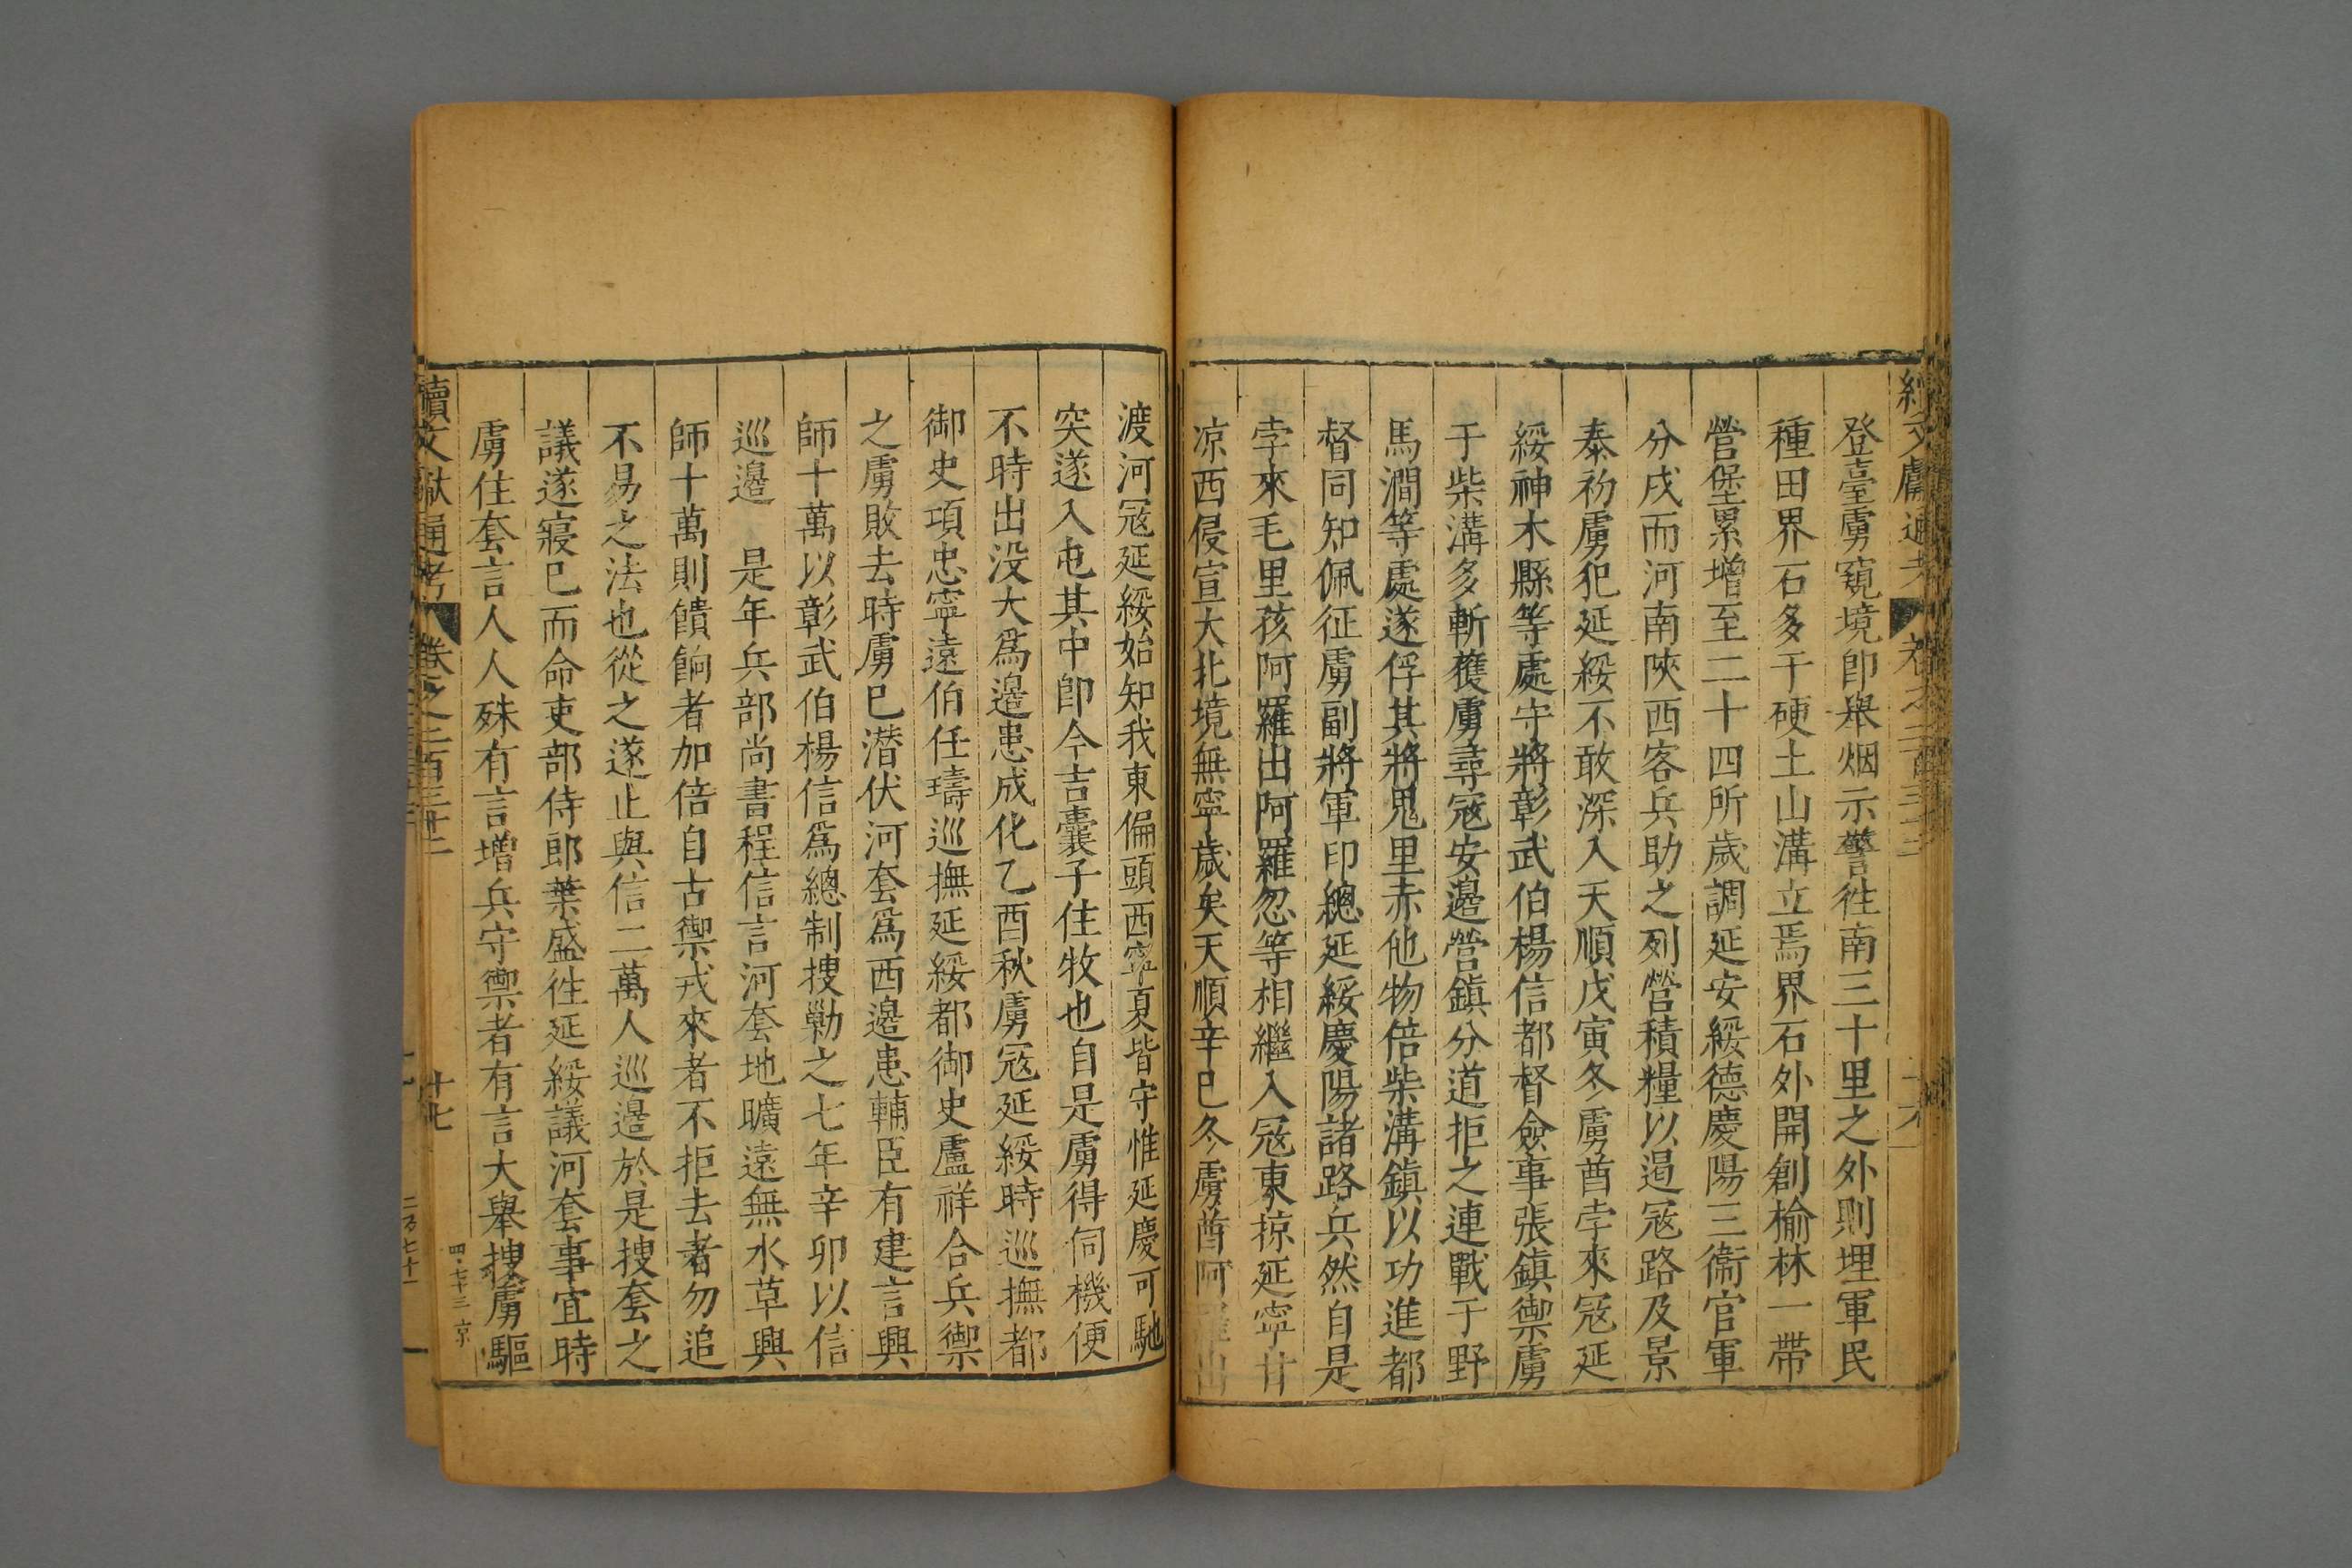 登臺虜窺境卽舉烟示警徃南三十里之外則埋軍民
種田界石多于硬土山溝立焉界石外開創榆林一帶
營堡累增至二十四所歲調延安綏德慶陽三衞官軍
分戍而河南陝西客兵助之列營積糧以遏冦路及景
泰初虜犯延綏不敢深入天順戊寅冬虜酋孛來冦延
綏神木縣等處守將彰武伯楊信都督僉事張鎮禦虜
于柴溝多斬獲虜尋冦安邊營鎮分道拒之連戰于野
馬澗等處遂俘其將鬼里赤他物倍柴溝鎮以功進都
督同知佩征虜副將軍印總延綏慶陽諸路兵然自是
孛來毛里孩阿羅出阿羅忽等相繼入冦東掠延寧甘
凉西侵宣大北境無寧歲矣天順辛巳冬虜酋阿羅出
渡河冦延綏始知我東偏頭西寧夏皆守惟延慶可馳
突遂入屯其中卽今吉囊子住牧也自是虜得伺機便
不時出没大爲邊患成化乙酉秋虜冦延綏時巡撫都
御史項忠寧遠伯任璹巡撫延綏都御史盧祥合兵禦
之虜敗去時虜巳潜伏河套爲西邊患輔臣有建言興
師十萬以彰武伯楊信爲總制搜勦之七年辛卯以信
巡邊　是年兵部尚書程信言河套地曠遠無水草興
師十萬則饋餉者加倍自古禦戎來者不拒去者勿追
不易之法也從之遂止與信二萬人巡邊於是搜套之
議遂寢巳而命吏部侍郎葉盛徃延綏議河套事宜時
虜住套言人人殊有言增兵守禦者有言大舉搜虜驅
續文獻通考 卷之二百三十二 十七
四・七十三 京